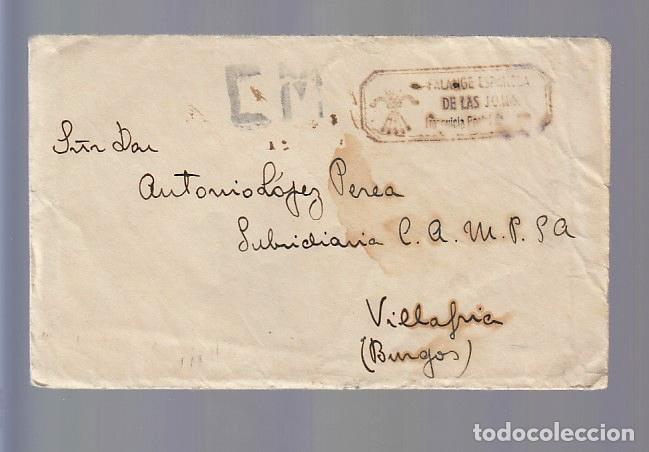 CM
FALANGE ESPAÑOLA
DE LAS JONS
Franquicia Postal
Señr Don
Antonio López Perea
Subsidiaria C. A. M. P. S A
Villafria
(Burgos)
todocoleccion